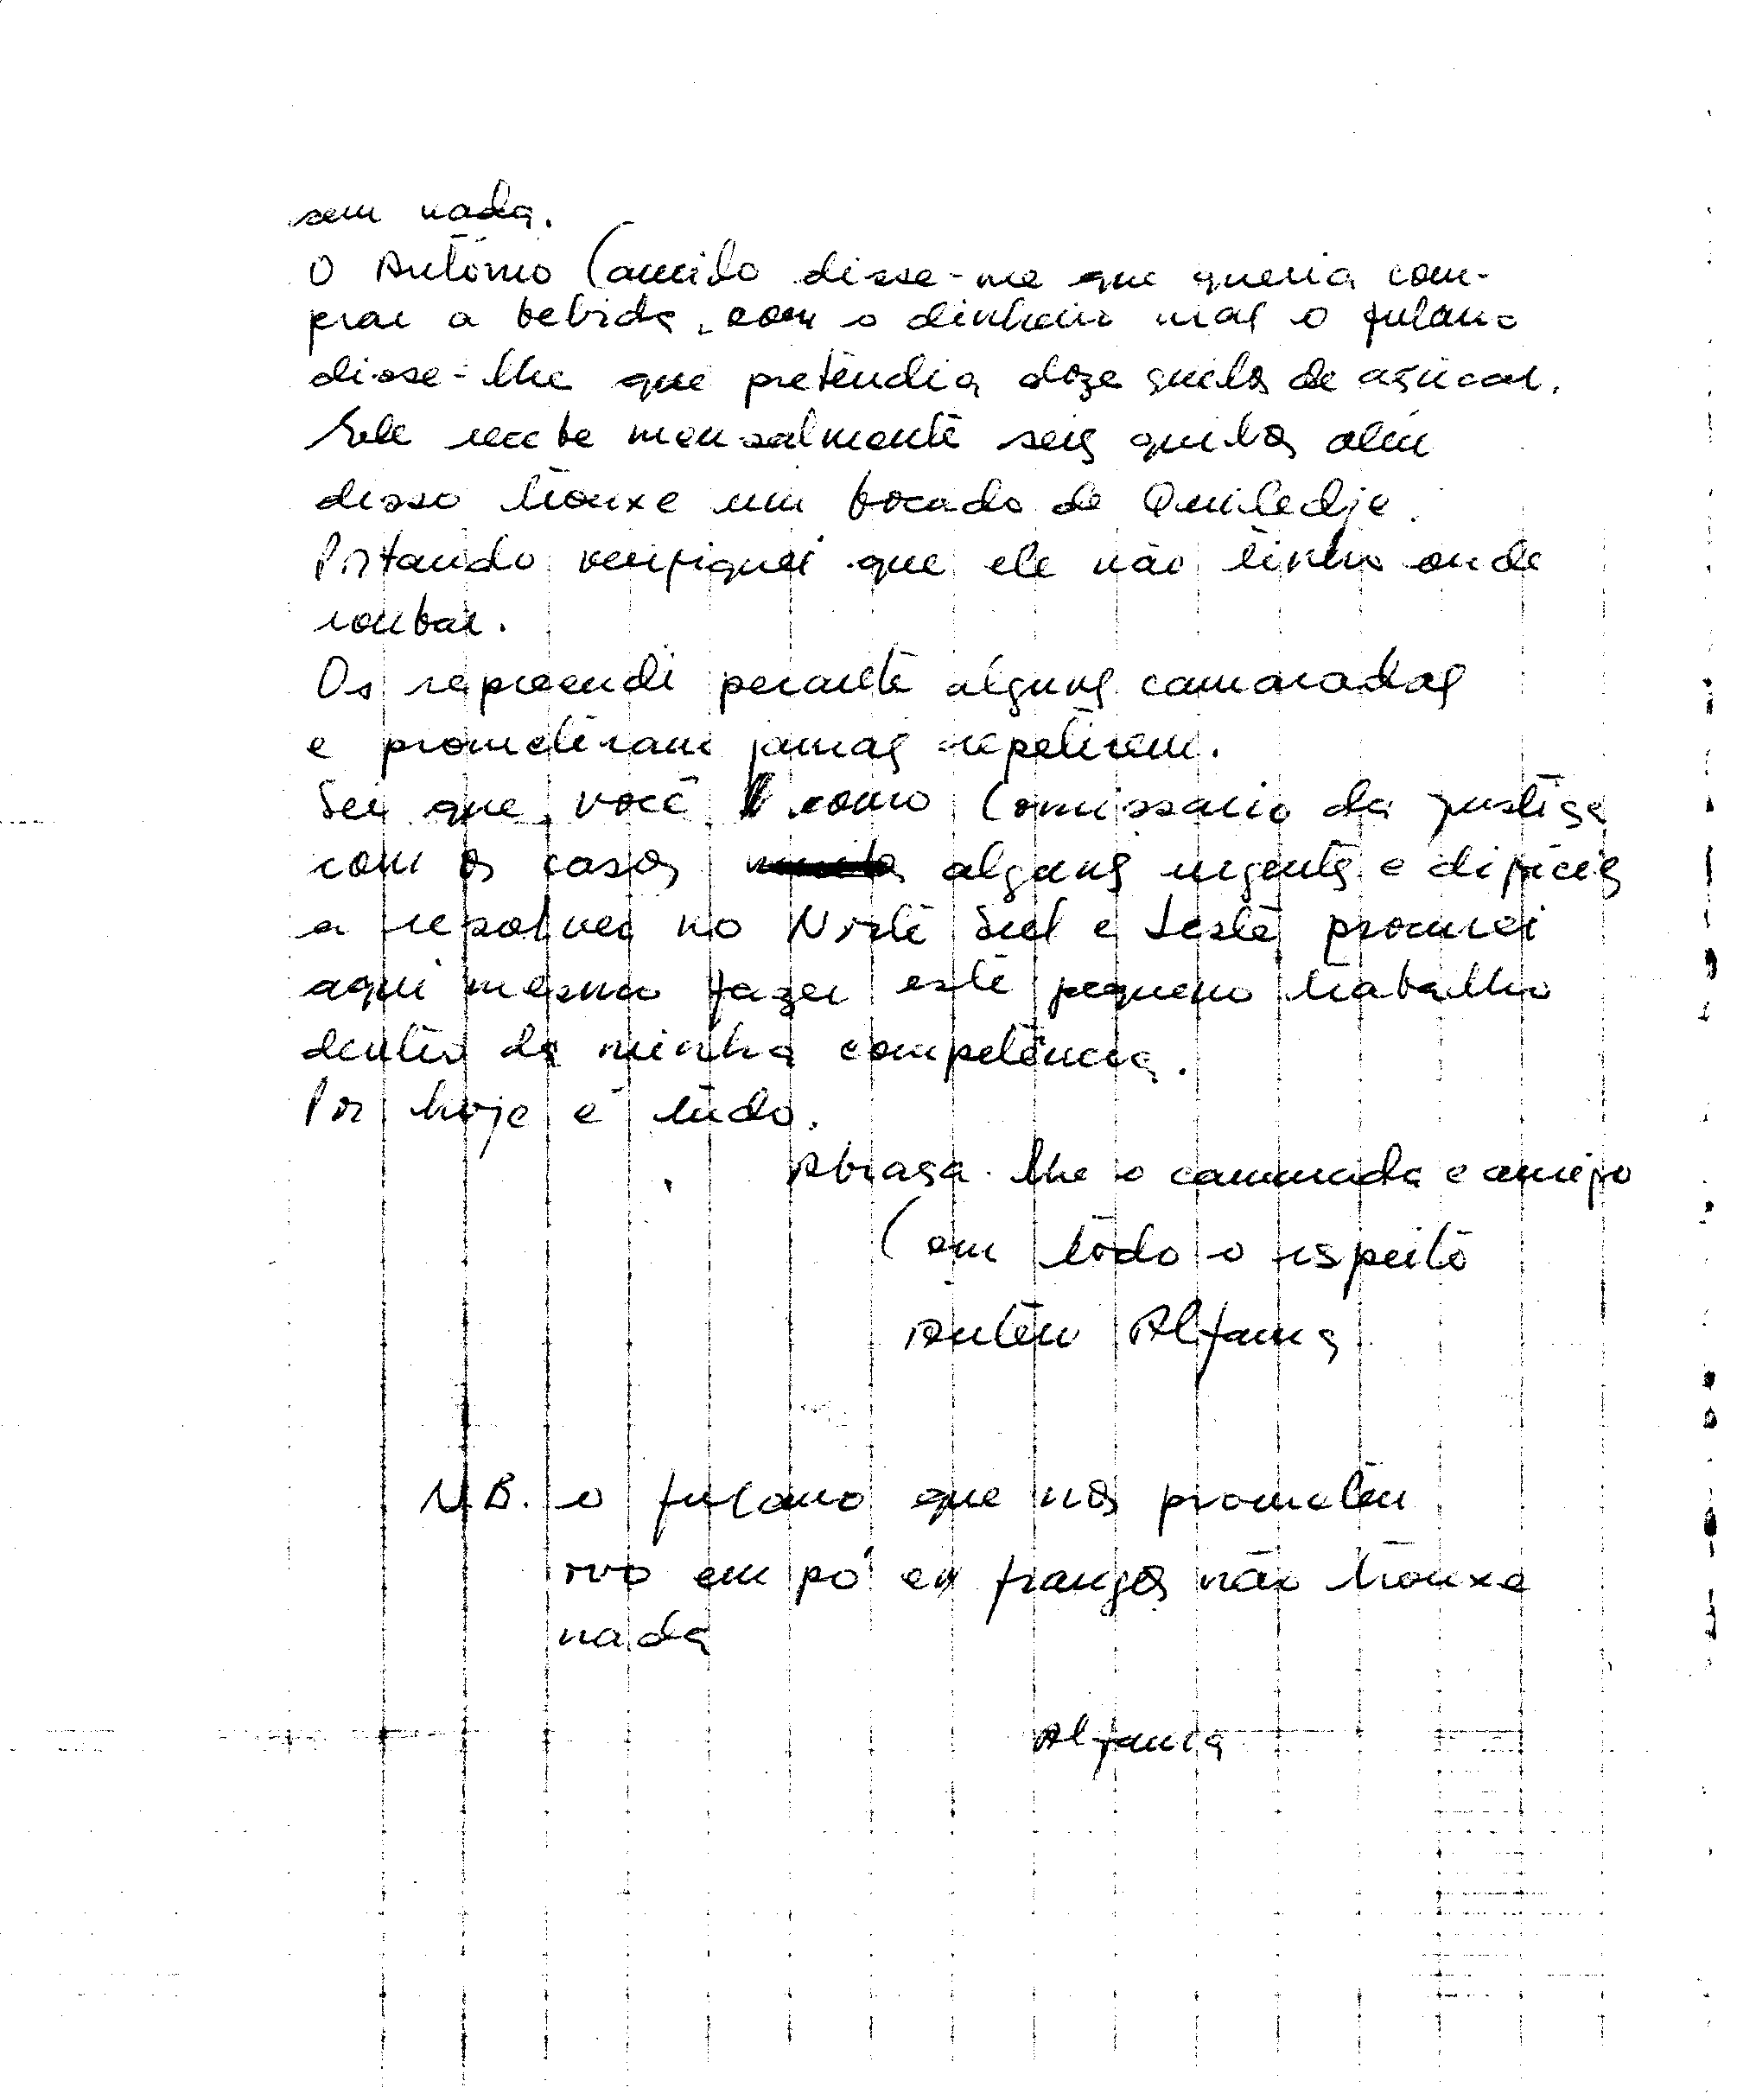 sem nada.
O António Camido disse-me que queria com-
prar a bebida, com o dinheiro mas o fulano
disse-lhe que pretendia doze quilos de açúcar.
Ele recebe mensalmente seis quilos além
disso trouxe um bocado de Quiledje.
Portando verifiquei que ele não tinha onde
roubar.
Os repreendi perante alguns camaradas
e prometiram jamas repetirem.
Sei que você como Comissario da justiça
com os casos alguns urgentes e difíceis
a resolver no Norte Sul e Leste procurei
aqui mesmo fazer este pequeno trabalho
dentro da minha competência.
Por hoje é tudo.
Abraça-lhe o camarada e amigo
Com todo o respeito
Alfama
N.B. o fulano que nos prometeu
ovo em pó e frangos não trouxe
nada
Alfama